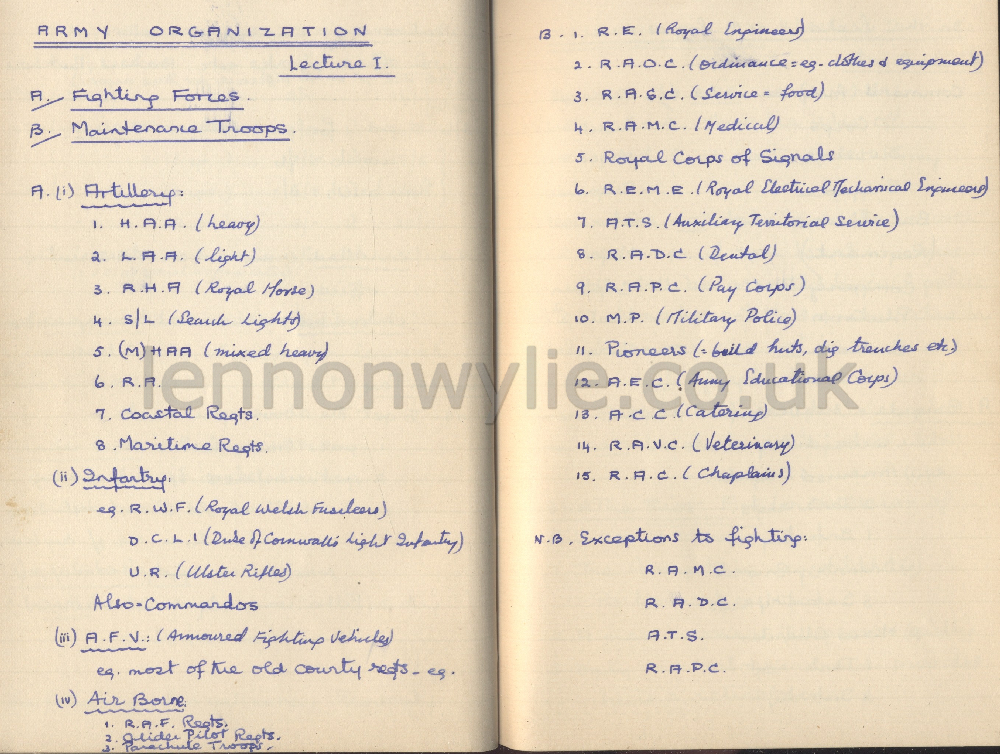 ARMY ORGANIZATION
Lecture I.
A. Fighting Forces.
B. Maintenance Troops.
A. (i) Artillery:
1. H.A.A. (heavy)
2. L.A.A. (light)
3. R.H.A (Royal Horse)
4. S/L (Search Lights)
5. (M) HAA (mixed heavy)
6. R.A.
7. Coastal Regts.
8. Maritime Regts.
(ii) Infantry:
eg. R.W.F. (Royal Welsh Fusileers)
D.C.L.I (Duke of Cornwall's Light Infantry)
U.R. (Ulster Rifles)
Also = Commandos
(iii) A.F.V.: (Armoured Fighting Vehicles)
eg. most of the old county regts - eg.
(iv) Air Borne:
1. R.A.F. Regts.
2. Glider Pilot Regts.
3. Parachute Troops.
B. 1. R.E. (Royal Engineers)
2. R.A.O.C. (Ordinance = eg. clothes & equipment)
3. R.A.S.C. (Service = food)
4. R.A.M.C. (Medical)
5. Royal Corps of Signals
6. R.E.M.E. (Royal Electrical Mechanical Engineers)
7. A.T.S. (Auxiliary Territorial Service)
8. R.A.D.C (Dental)
9. R.A.P.C. (Pay Corps)
10. M.P. (Military Police)
11. Pioneers (= build huts, dig trenches etc.)
12. A.E.C. (Army Educational Corps)
13. A.C.C. (Catering)
14. R.A.V.C. (Veterinary)
15. R.A.C. (Chaplains)
N.B. Exceptions to fighting:
R.A.M.C.
R.A.D.C.
A.T.S.
R.A.P.C.
lennonwylie.co.uk